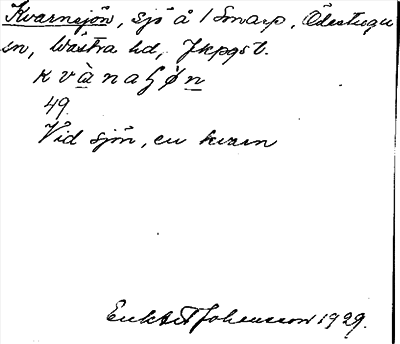 Kvarnsjön, sjö å 1 Smarp, Ödestugu
sn, Västra hd, Jkpgs l.
kvànaʃö́n
49.
Vid sjön, en kvarn
Johansson 1929.